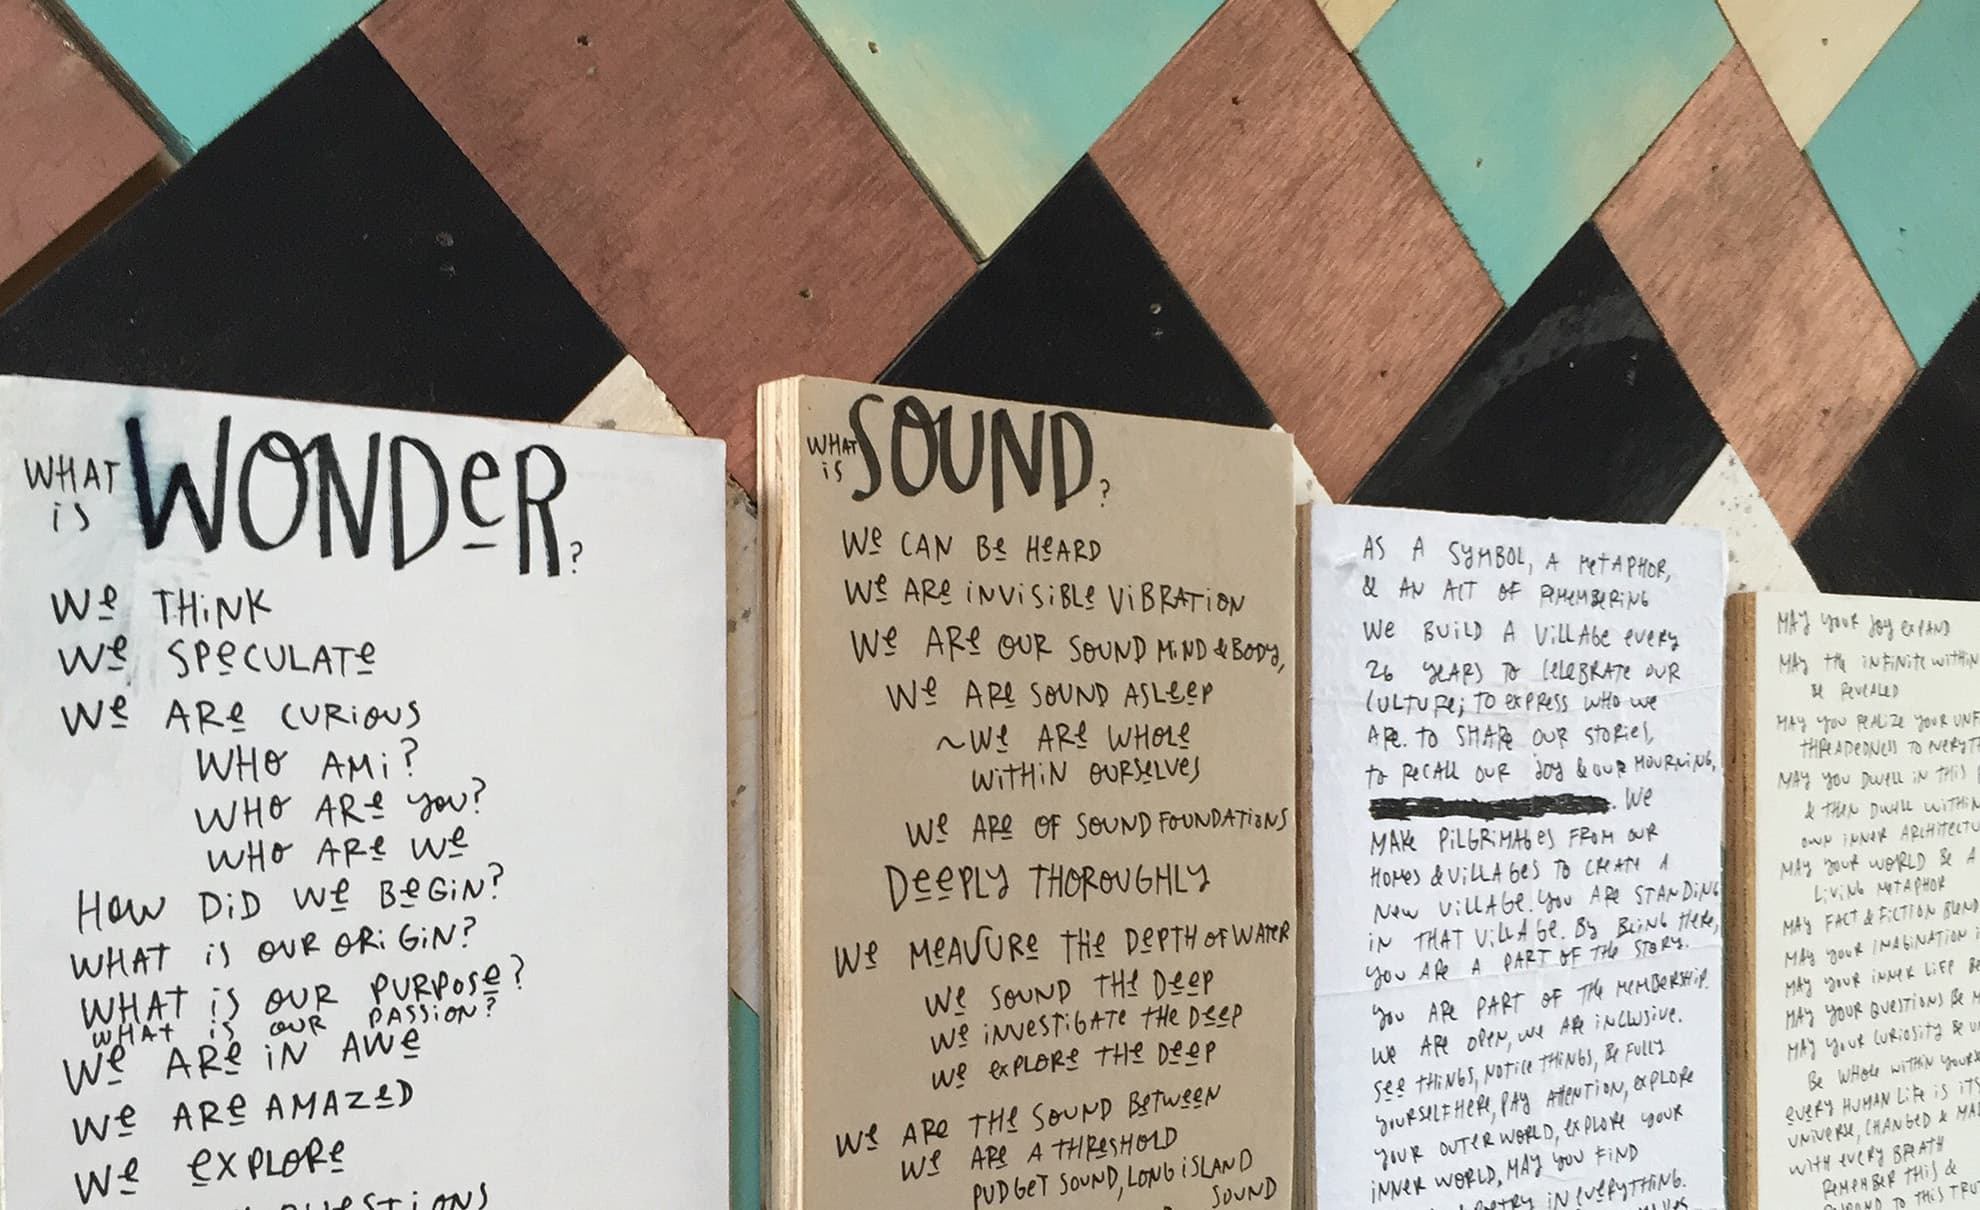 WHAT is WONDeR?
We THiNK
We SPeCULATe
We ARe CURiOUS
WHO AM i?
WHO ARe YOU?
WHO ARe We
HOW DiD We BeGiN?
WHAT iS OUR ORiGiN?
WHAT iS OUR PURPOSe?
WHAT iS OUR PASSiON?
We ARe iN AWe
We ARe AMAZeD
We eXPLORe
QUeSTiONS
WHAT is SOUND?
We CAN Be HeARD
We ARe iNViSiBLe ViBRATiON
We ARe OUR SOUND MiND & BODY,
We ARe SOUND ASLeeP
~We ARe WHOLe
WiTHiN OURSeLVeS
We ARe OF SOUND FOUNDATiONS
DeePLY THOROUGHLY
We MeASURe THe DePTH OF WATeR
We SOUND THe DeeP
We iNVeSTiGATe THe DeeP
We eXPLORe THe DeeP
We ARe THe SOUND BeTWeeN
We ARe A THReSHOLD
PUDGeT SOUND, LONG iSLAND
SOUND
AS A SYMBOL, A MeTAPHOR,
& AN ACT OF ReMeMBeRiNG
We BUiLD A ViLLAGe eVeRY
26 YeARS TO CeLeBRATe OUR
CULTURe; TO eXPReSS WHO We
ARe. TO SHARe OUR STORieS,
TO ReCALL OUR JOY & OUR MOURNiNG,
. We
MAKe PiLGRiMAGeS FROM OUR
HOMeS & ViLLAGeS TO CReATe A
NeW ViLLAGe. YOU ARe STANDiNG
iN THAT ViLLAGe. BY BeiNG HeRe,
YOU ARe A PART OF THe STORY.
YOU ARe PART OF THe MeMBeRSHiP.
We ARe OPeN, We ARe iNCLUSiVe.
See THiNGS, NOTiCe THiNGS, Be FULLY
YOURSeLF HeRe, PAY ATTeNTiON, eXPLORe
YOUR OUTeR WORLD, eXPLORe YOUR
iNNeR WORLD, MAY YOU FiND
POeTRY iN eVeRYTHiNG.
MAY YOUR JOY eXPAND
MAY THe iNFiNiTe WiTHiN
Be ReVeALeD
MAY YOU ReALiZe YOUR
THReADeDNeSS TO
MAY YOU DWeLL iN THiS
& THeN DWeLL WiTHiN
OWN iNNeR
MAY YOUR WORLD Be A
LiViNG MeTAPHOR
MAY FACT & FiCTiON BLeND
MAY YOUR iMAGiNATiON
MAY YOUR iNNeR LiFe
MAY YOUR QUeSTiONS Be
MAY YOUR CURiOSiTY Be
Be WHOLe WiTHiN
eVeRY HUMAN LiFe iS iTS
UNiVeRSe, CHANGeD &
WiTH eVeRY BReATH
ReMeMBeR THiS &
TO THiS